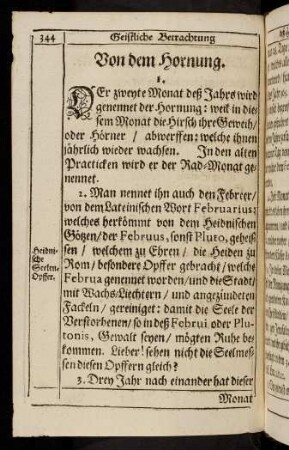 344
Geistliche Betrachtung
Von dem Hornung.
1.
DEr zweyte Monat deß Jahrs wird
genennet der Hornung: weil in die-
sem Monat die Hirsch ihr Geweih /
oder Hörner / abwerffen: welche ihnen
jährlich wieder wachsen. In den alten
Practicken wird er der Rad-Monat ge-
nennet.
2. Man nennet ihn auch den Febrer /
von dem Lateinischen Wort Februarius:
welches herkömt von dem Heidnischen
Götzen / der Februus, sonst Pluto, geheis-
sen / welchem zu Ehren / die Heiden zu
Rom / besondere Opffer gebracht / welche
Februa genennet worden / und die Stadt /
mit Wachs-Liechtern / und angezündeten
Fackeln / gereiniget: damit die Seele der
Verstorbenen / so in deß Februi oder Plu-
tonis, Gewalt seyen / mögten Ruhe be-
kommen. Lieber! sehen nicht die Seelmes-
sen diesen Opffern gleich?
3. Drey Jahr nach einander hat dieser
Monat
Heidni-
sche
Seelen-
Opffer.